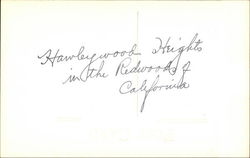 Hawleywood Heights
in the Redwoods of
California